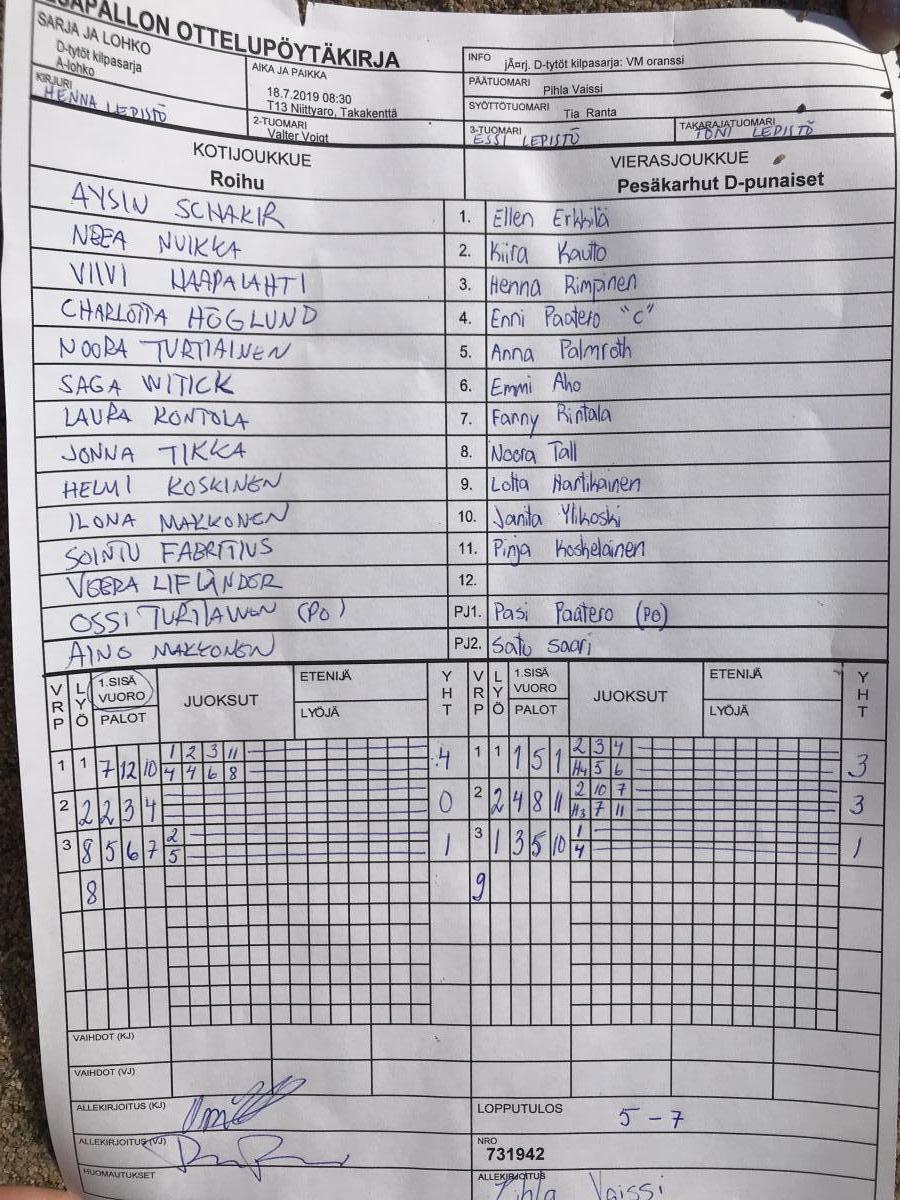 PALLON OTTELUPÖYTÄKIRJA
SARJA JA LOHKO
D-tytöt kilpasarja
A-lohko
KIRJURI
HENNA LEPISTÖ
AIKA JA PAIKKA
18.7.2019 08:30
T13 Niittyaro, Takakenttä
2-TUOMARI
Valter Voigt
INFO jÃ¤rj. D-tytöt kilpasarja: VM oranssi
PÄÄTUOMARI Pihla Vaissi
SYÖTTÖTUOMARI Tia Ranta
3-TUOMARI ESSI LEPISTÖ
TAKARAJATUOMARI TONI LEPISTÖ
KOTIJOUKKUE VIERASJOUKKUE
Roihu Pesäkarhut D-punaiset
AYSIN SCHAKIR 1. Ellen Erkkilä
NEEA NUIKKA 2. Kiira Kautto
VIIVI HAAPALAHTI 3. Henna Rimpinen
CHARLOTTA HÖGLUND 4. Enni Paatero "C"
NOORA TURTIAINEN 5. Anna Palmroth
SAGA WITICK 6. Emmi Aho
LAURA KONTOLA 7. Fanny Rintala
JONNA TIKKA 8. Noora Tall
HELMI KOSKINEN 9. Lotta Hartikainen
ILONA MAKKONEN 10. Janita Ylikoski
SOINTU FABRITIUS 11. Pinja Koskelainen
VEERA LIFLÄNDER 12.
OSSI TURTIAINEN (PO) PJ1. Pasi Paatero (PO)
AINO MAKKONEN PJ2. Satu Saari
VRP LYÖ 1.SISÄ VUORO PALOT JUOKSUT ETENIJÄ LYÖJÄ YHT VRP LYÖ 1.SISÄ VUORO PALOT JUOKSUT ETENIJÄ LYÖJÄ YHT
1 1 7 12 10 1 2 3 11 4 1 1 1 5 1 2 3 4 3
4 4 6 8 H4 5 6
2 2 2 3 4 0 2 2 4 8 11 2 10 7 3
H3 7 11
3 8 5 6 7 2 1 3 1 3 5 10 1 1
5 4
8 9
VAIHDOT (KJ)
VAIHDOT (VJ)
ALLEKIRJOITUS (KJ) LOPPUTULOS 5-7
ALLEKIRJOITUS (VJ) NRO
731942
HUOMAUTUKSET ALLEKIRJOITUS
Pihla Vaissi